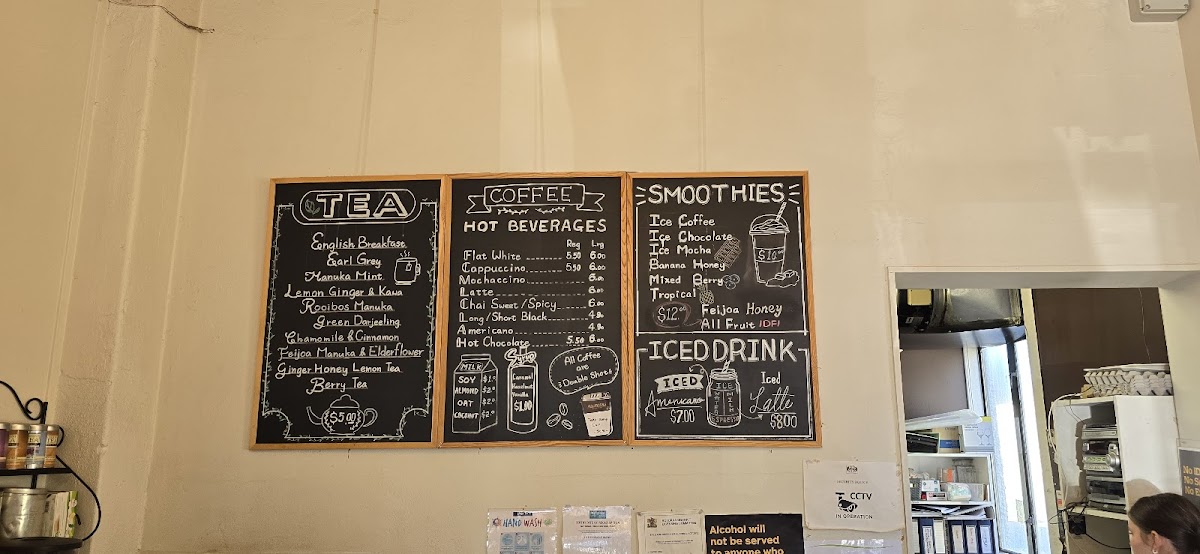 TEA
English Breakfast
Earl Grey
Manuka Mint
Lemon Ginger & Kawa
Rooibos Manuka
Green Darjeeling
Chamomile & Cinnamon
Feijoa Manuka & Elderflower
Ginger Honey Lemon Tea
Berry Tea
$5.00
COFFEE
HOT BEVERAGES
Reg Lrg
Flat White 5.50 6.00
Cappuccino 5.50 6.00
Mochaccino 6.00
Latte 6.00
Chai Sweet/Spicy 6.00
Long/Short Black 4.80
Americano 4.80
Hot Chocolate 5.50 6.00
MILK
SOY
ALMOND
OAT
COCONUT
Syrup
Caramel
Hazelnut
Vanilla
$1.00
All Coffee
are
Double Shots
SMOOTHIES
Ice Coffee
Ice Chocolate
Ice Mocha
Banana Honey
Mixed Berry
Tropical
$12.00
Feijoa Honey
All Fruit (DF)
ICED DRINK
ICED
Americano
$7.00
ICE
MILK
ESPRESSO
Iced
Latte
$8.00
HAND WASH
CCTV
IN OPERATION
Alcohol will
not be served
to anyone who